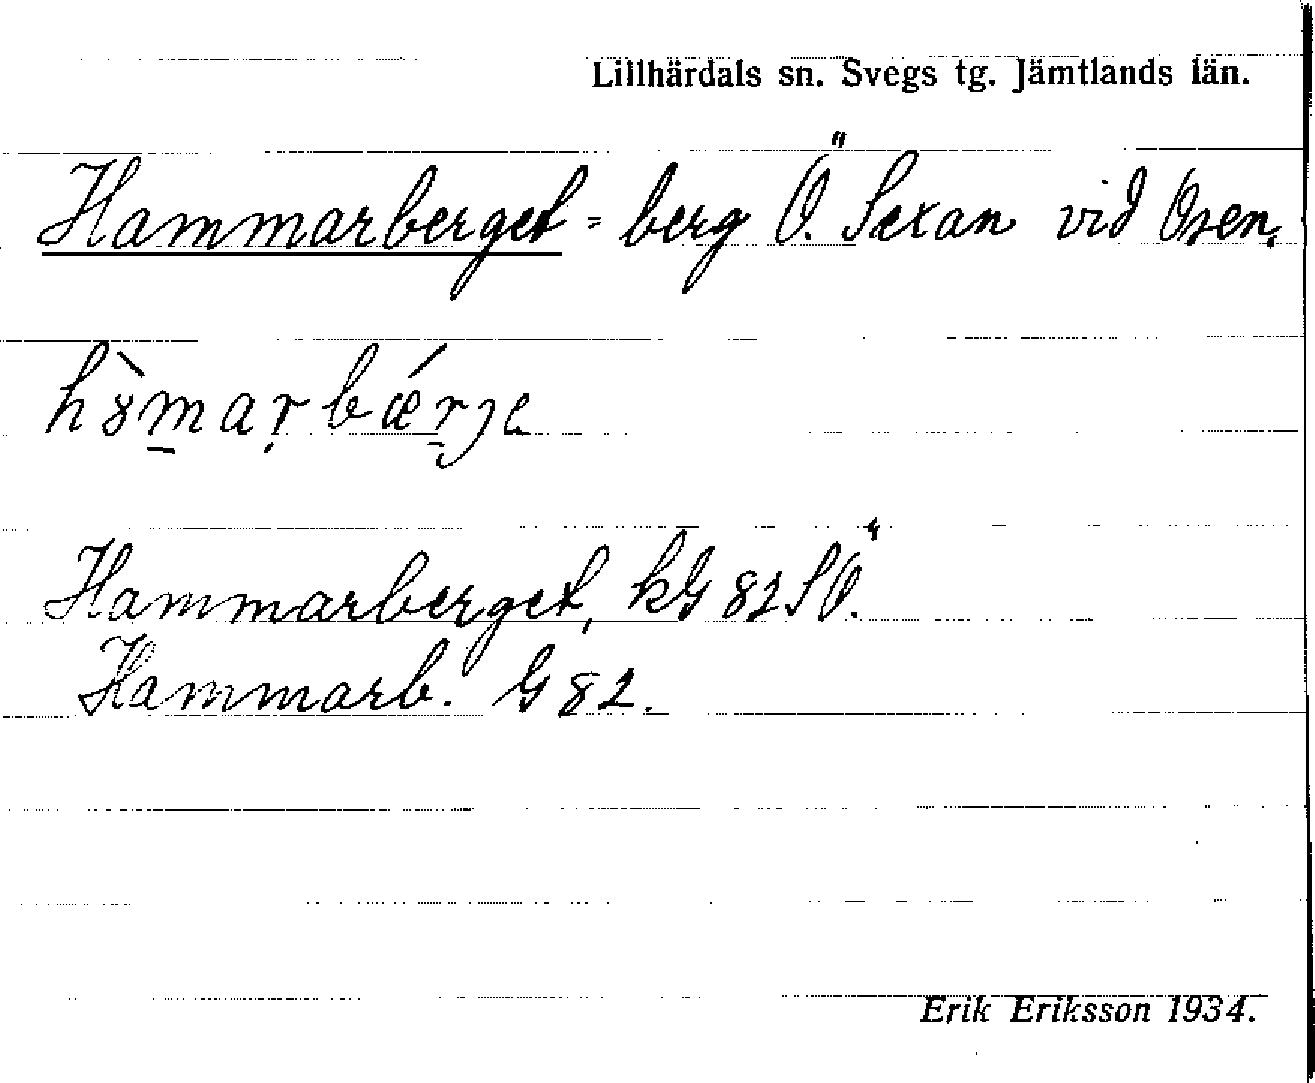 Lillhärdals sn. Svegs tg. Jämtlands län.
Hammarberget = berg Ö. Sexan vid Osen.
Hammarberget, kG 82 SÖ.
Hammarb. G 82.
Erik Eriksson 1934.